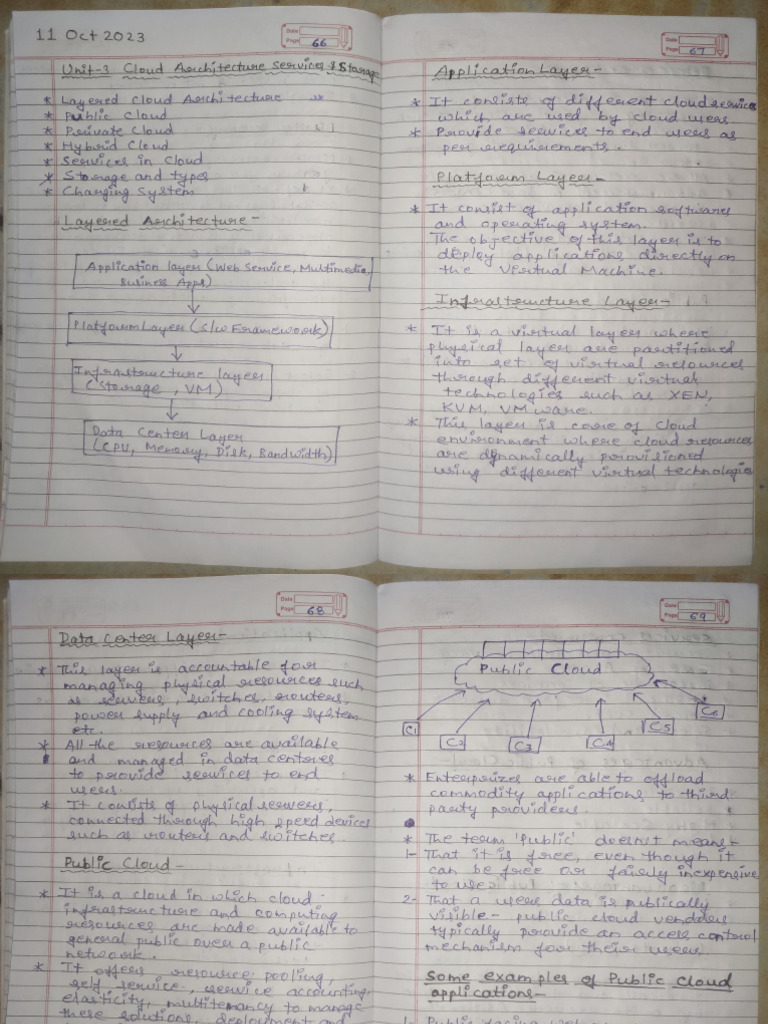 11 Oct 2023
Date
Page 66
Unit-3 Cloud Architecture Services & Storage
* Layered Cloud Architecture
* Public Cloud
* Private Cloud
* Hybrid Cloud
* Services in Cloud
* Storage and types
* Charging System
Layered Architecture-
Application layer (Web Service, Multimedia,
Business Apps)
Platform Layer (S/w Framework)
Infrastructure layer
(Storage, VM)
Data Center Layer
(CPU, Memory, Disk, Bandwidth)
Date
Page 67
Application Layer-
* It consists of different cloud services
which are used by cloud users.
* Provide services to end users as
per requirements.
Platform Layer-
* It consist of application softwares
and operating system.
The objective of this layer is to
deploy applications directly on
the Virtual Machine.
Infrastructure Layer-
* It is a virtual layer where
physical layer are partitioned
into set of virtual resources
through different virtual
technologies such as XEN,
KVM, VM ware.
* This layer is core of cloud
environment where cloud resources
are dynamically provisioned
using different virtual technologies
Date
Page 68
Data Center Layer-
* This layer is accountable for
managing physical resources such
as servers, switches, routers,
power supply and cooling system
etc.
* All the resources are available
and managed in data centeres
to provide services to end
users.
* It consists of physical servers,
connected through high speed devices
such as routers and switches.
Public Cloud-
* It is a cloud in which cloud-
infrastructure and computing
resources are made available to
general public over a public
network.
* It offers resource pooling,
self service, service accounting,
elasticity, multitenancy to manage
these solutions, deployment and
Date
Page 69
Public Cloud
C1
C2
C3
C4
C5
C6
* Enterprizes are able to offload
commodity applications to third
party providers.
* The term 'public' doesn't means-
1- That it is free, even though it
can be free or fairly inexpensive
to user
2- That a users data is publically
visible- public cloud vendors
typically provide an access control
mechanism for their users.
Some examples of Public Cloud
applications-
1- Public facing